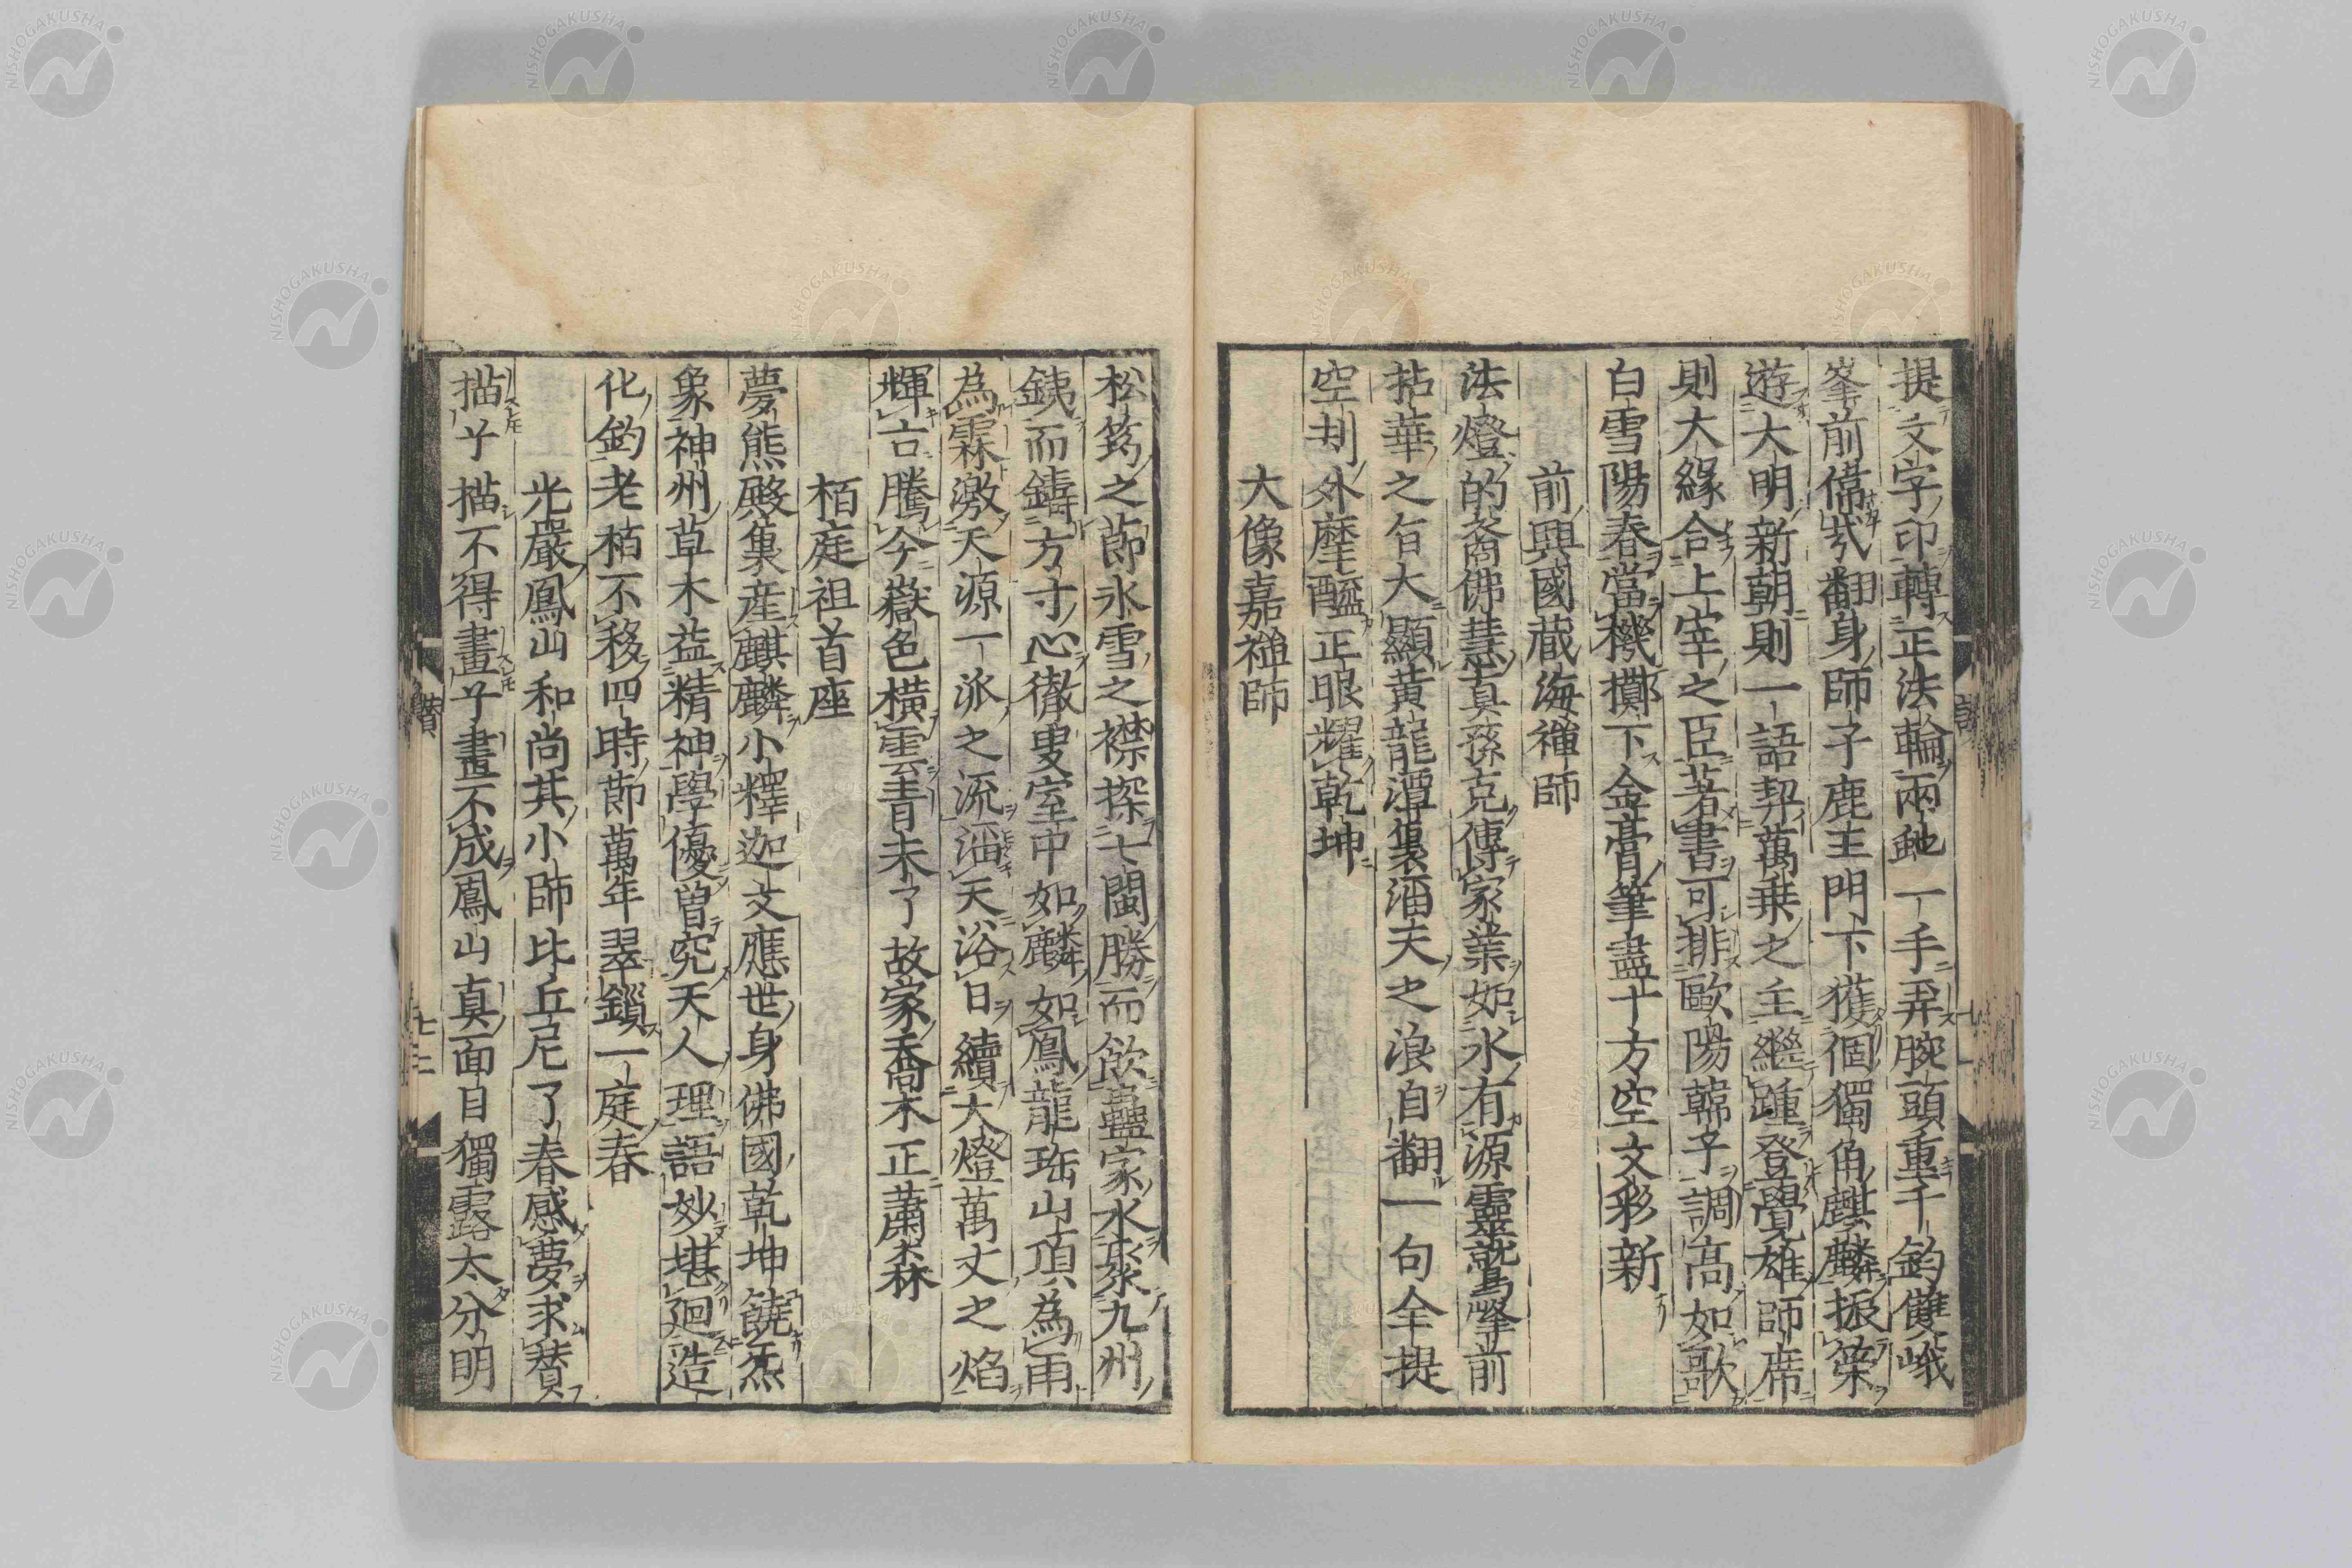 提文字印轉正法輪兩乾一手弄腕頭重千鈞雙峨
峯前偶然翻身師子鹿主門下獲個獨角麒麟振策
遊大明新朝則一語契萬乘之主繼踵登覺雄師席
則大緣合上宰之臣著書可排歐陽韓子調高如歌
白雪陽春當機擲下金膏筆盡十方空文彩新
前興國藏海禪師
法燈的裔佛慧真孫克傳家業如水有源靈鷲峯前
拈華之旨大顯黃龍潭裏滔天之浪自翻一句全提
空刦外摩醯正眼耀乾坤
大像嘉禪師
松筠之節氷雪之襟探七閩勝而飲蠱家水聚九州
銕而鑄方寸心徹叟室中如麟如鳳龍珤山頂為雨
為霖激天源一派之流滔天浴日續大燈萬丈之焰
輝古騰今嶽色橫雲青未了故家喬木正蕭森
栢庭祖首座
夢熊啟兆產麒麟小釋迦文應世身佛國乾坤饒氣
象神州草木益精神學優曾究天人理語妙堪廻造
化鈞老栢不移四時節萬年翠鎖一庭春
光嚴鳳山和尚其小師比丘尼了春感夢求賛
描乎描不得畫乎畫不成鳳山真面目獨露太分明
賛
七二
NISHOGAKUSHA